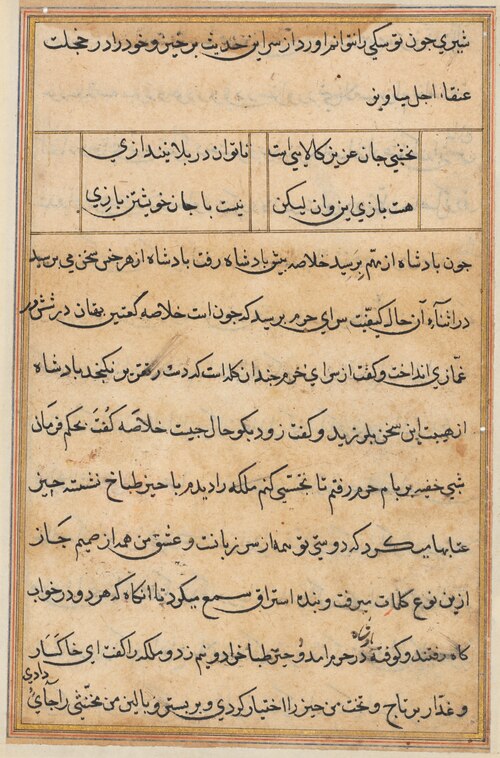 شیری چون تو سکی را نتوانم اورد از سر این حدیث برخیز و خود را در خجلت
عنقاء اجل میاویز
نخشبی جان عزیز کالاییست
تا توان در بلا نیندازی
هست بازی این و آن لیکن
نیست با جان خویشتن بازی
چون بادشاه از مهم برسید خلاصه پیش بادشاه رفت بادشاه از هر جنس سخن می برسید
در اثناء آن حال کیفیت سرای حرم برسید که چون است خلاصه کعتین بهتان در شش در
غمازی انداخت و کفت از سرای حرم چندان کله است که در کفتن بر نکنجد بادشاه
از هیبت این سخن بلرزید و کفت زود بکو حال چیست خلاصه کفت بحکم فرمان
شبی خفیه بر بام حرم رفتم تا تجسسی کنم ملکه را دیدم با حیز طباخ نشسته حیز
عتابها میکرد که دوستی تو همه از سر زبانست و عشق من همه از صمیم جان
ازین نوع کلمات میرفت و بنده استراق سمع میکرد تا انکاه که هر دو در خواب
کاه رفتند و کوفته در حرم امد و حیز طباخ را دو نیم زد و ملکه را کفت ای خاکسار
و غدار بر تاج و تخت من حیز را اختیار کردی و بر بستر و بالین من مخنثی را جای
دادی